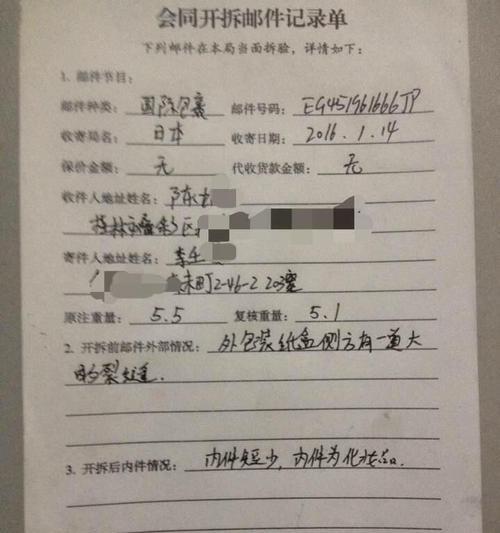 会同开拆邮件记录单
下列邮件在本局当面拆验，详情如下：
1. 邮件节目：
邮件种类： 国际包裹 邮件号码： EG451961666JP
收寄局名： 日本 收寄日期： 2016.1.14
保价金额： 无 代收货款金额： 无
收件人地址姓名： 陈
桂林市叠彩区
寄件人地址姓名： 李
町2-46-2 203室
原注重量： 5.5 复核重量： 5.1
2. 开拆前邮件外部情况： 外包装纸盒侧方有一道大
的裂缝.
3. 开拆后内件情况： 内件短少，内件为化妆品.